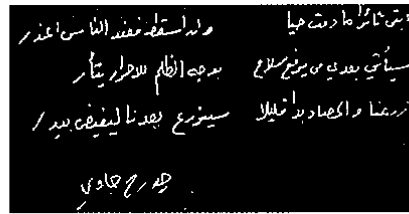 ابقى ثائرا ما دمت حيا ولئن أسقط فعند الناس أعذر
سيأتي بعدي من يرفع سلاح بوجه الظلم للاحرار يثأر
زرعنا والحصاد بدا قليلا سيزرع بعدنا ليفيض بيدر
جورج حاوي